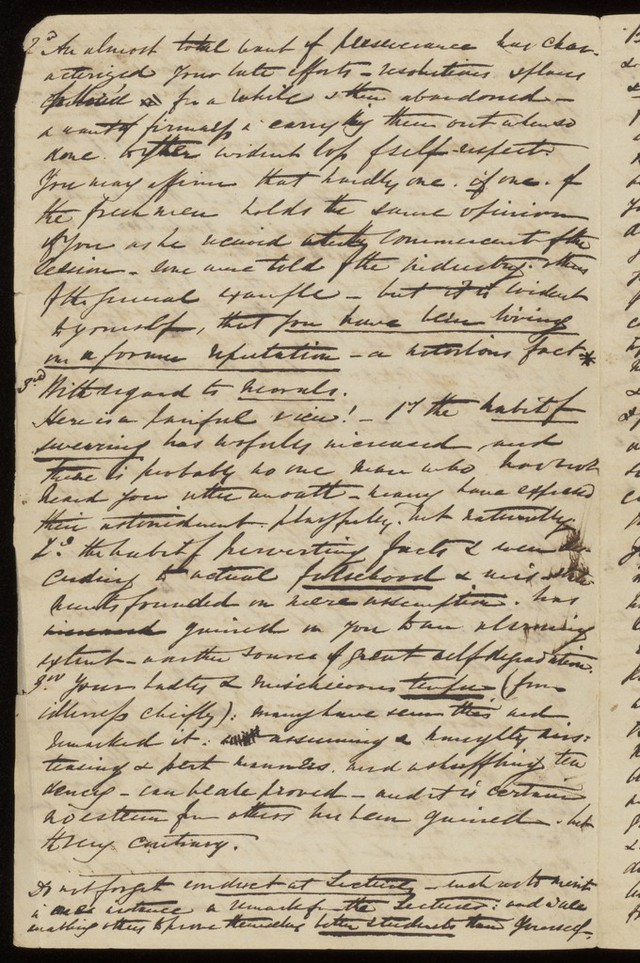 2d An almost total want of perseverance has char-
acterized your late efforts - resolutions & plans
for a while & then abandoned -
a want of firmness in carrying them out when so
done. evident loss of self-respect.
You may affirm that hardly one. if one. of
the freshmen holds the same opinion
of you as he at the commencement of the
Session - some were told of the industry. others
of the general example - but it is evident
to yourself, that you have been living
on a former reputation - a notorious fact *
3rd With regard to morals.
Here is a painful view! - 1st the habit of
swearing has awfully increased and
there is probably no one man who has not
heard you utter an oath - many have expressed
their astonishment playfully. but naturally.
2d the habit of perverting facts & even
to actual falsehood &
founded on mere assumption. has
gained on you to an alarming
extent - another source of great self degradation.
3rd Your hasty & mischievous temper (from
idleness chiefly): many have seen this and
remarked it: assuming & haughty airs:
teasing & pert manners. and a shuffling ten
dency - can be all proved - and it is certain
no esteem for others has been gained - but
the very contrary.
Do not forget conduct at Lectures - such as to merit
in one instance a remark from the Lecturer: and
enabling others to prove themselves better students than yourself.